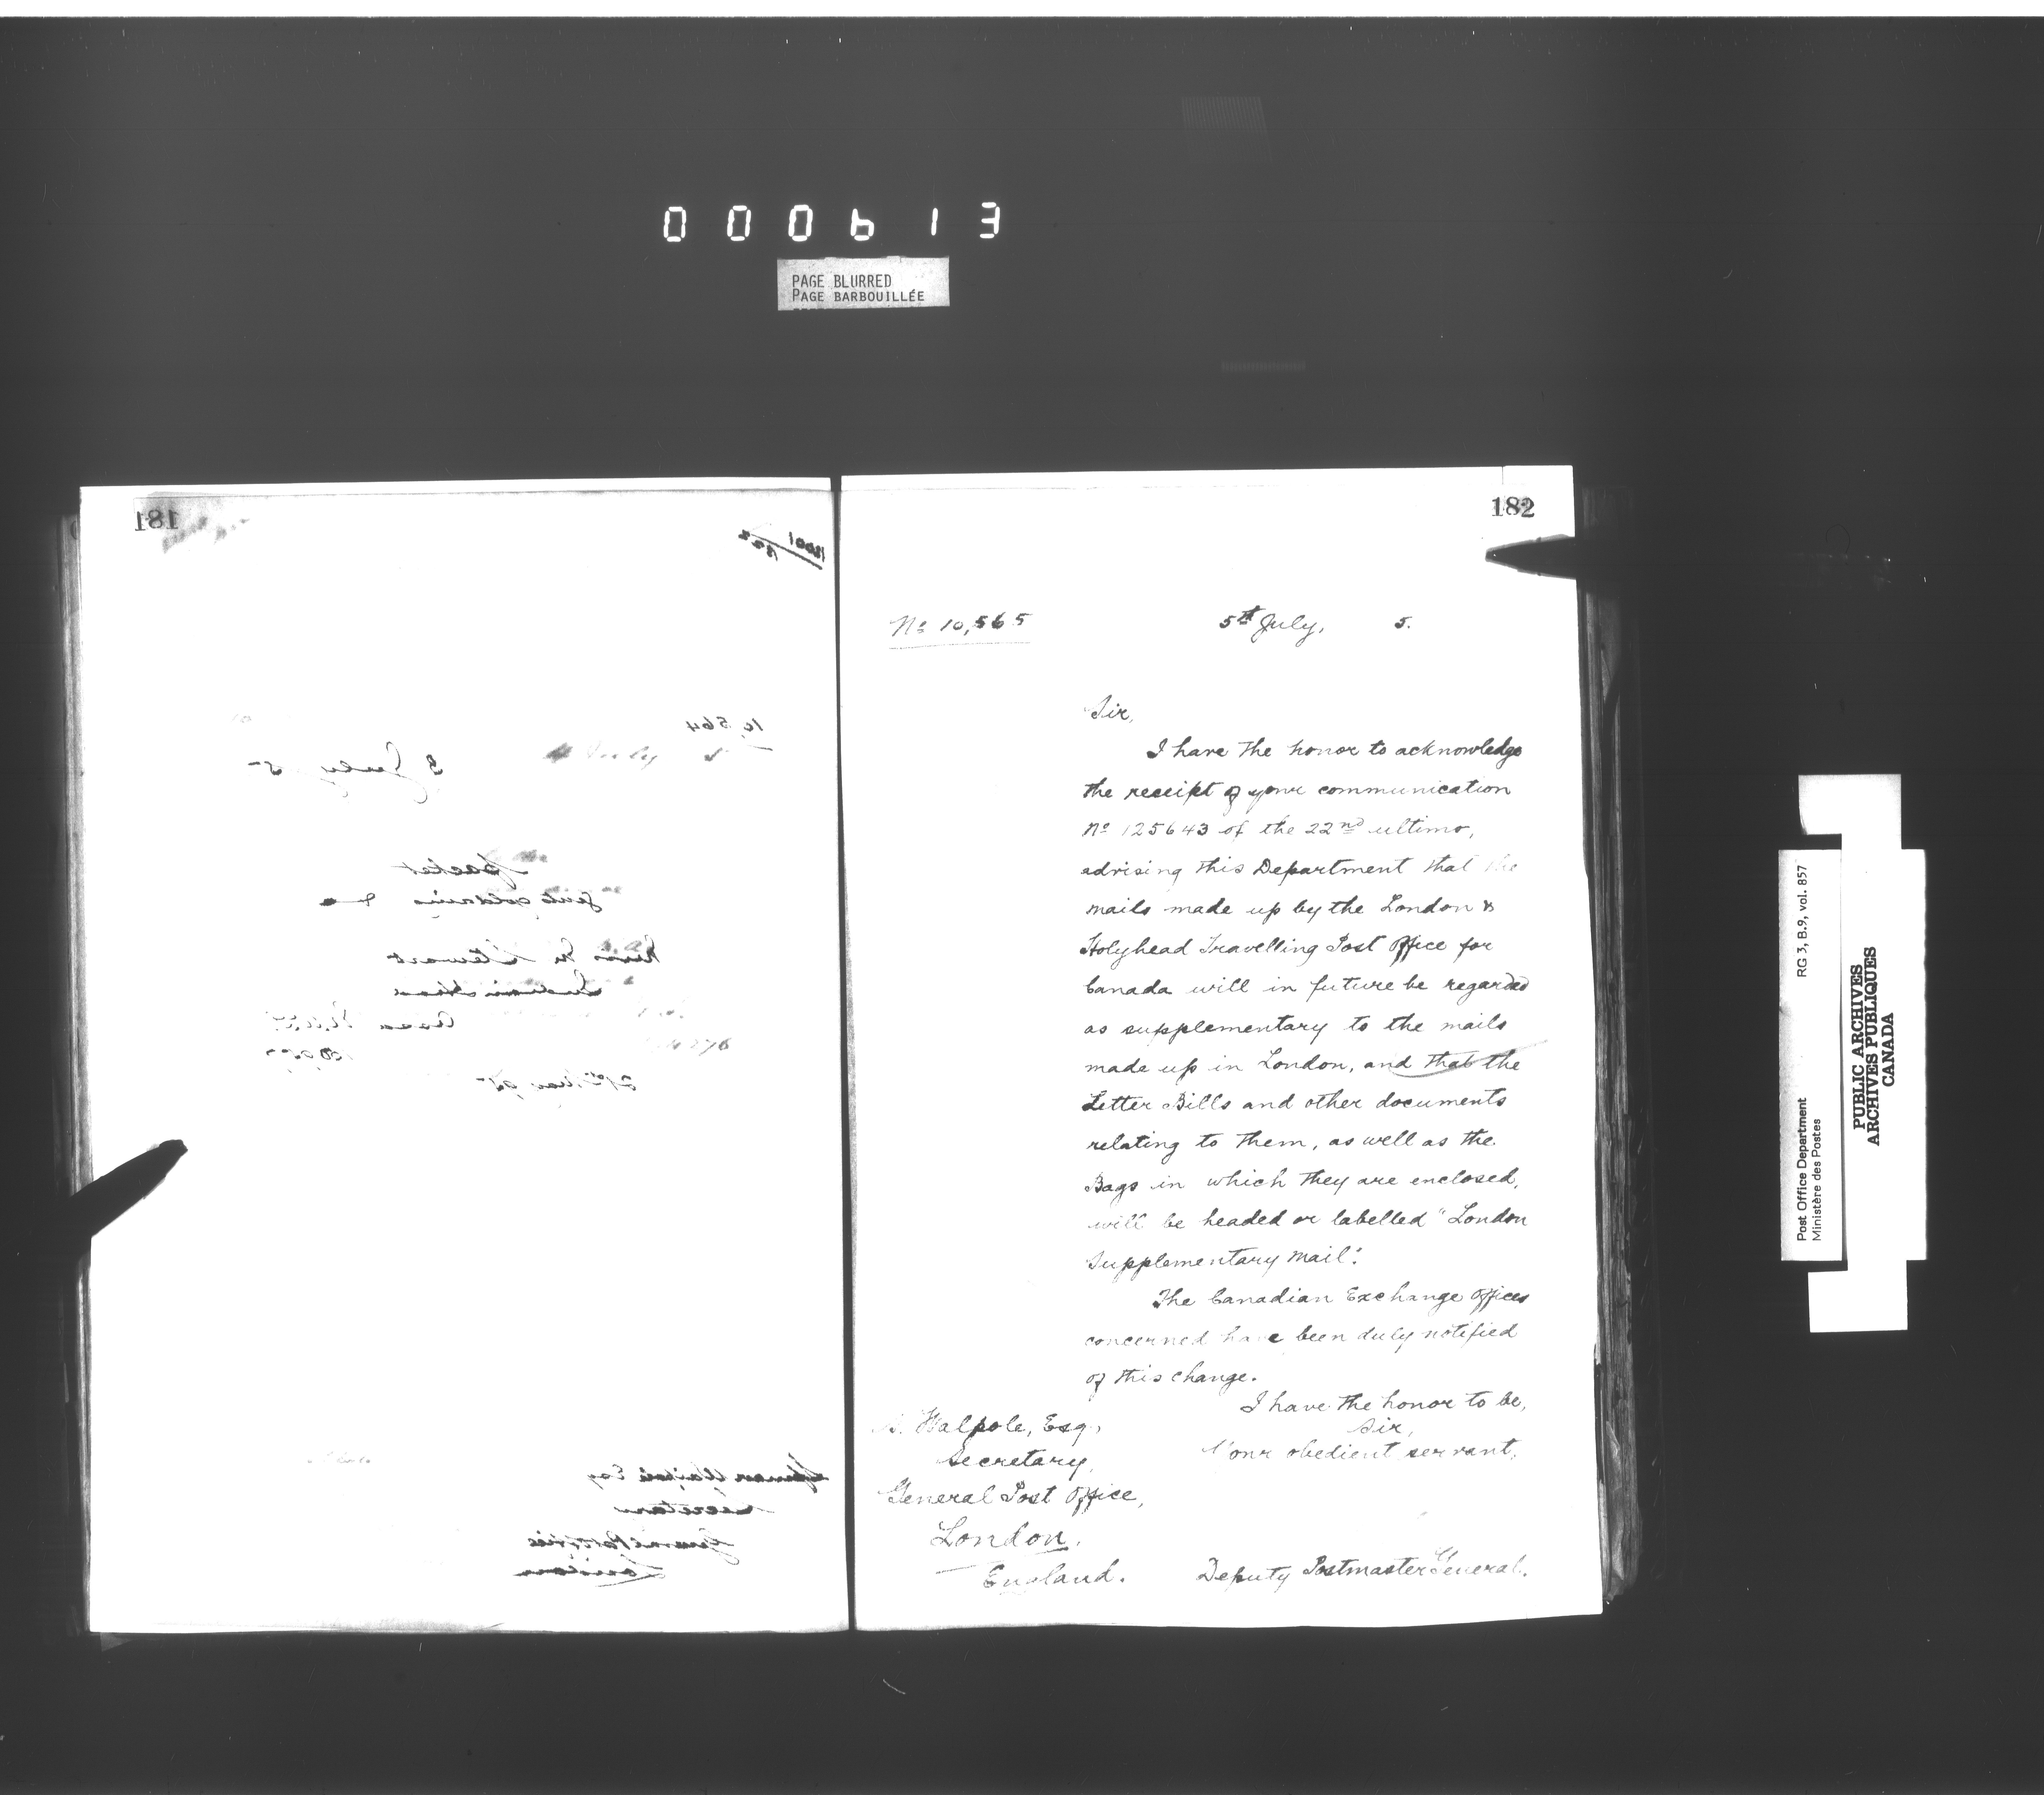 000613
PAGE BLURRED
PAGE BARBOUILLÉE
181
10,564
5 July 5
packet
Secretary
General Post Office
London
182
No 10,565
5th July, 5.
Sir,
I have the honor to acknowledge
the receipt of your communication
No 125643 of the 22nd ultimo,
advising this Department that the
mails made up by the London &
Holyhead Travelling Post Office for
Canada will in future be regarded
as supplementary to the mails
made up in London, and that the
Letter Bills and other documents
relating to them, as well as the
Bags in which they are enclosed,
will be headed or labelled "London
Supplementary Mail".
The Canadian Exchange Offices
concerned have been duly notified
of this change.
I have the honor to be,
Sir,
Your obedient servant,
S. Walpole, Esq,
Secretary,
General Post Office,
London.
England.
Deputy Postmaster General.
Post Office Department
Ministère des Postes
RG 3, B.9, vol. 857
PUBLIC ARCHIVES
ARCHIVES PUBLIQUES
CANADA